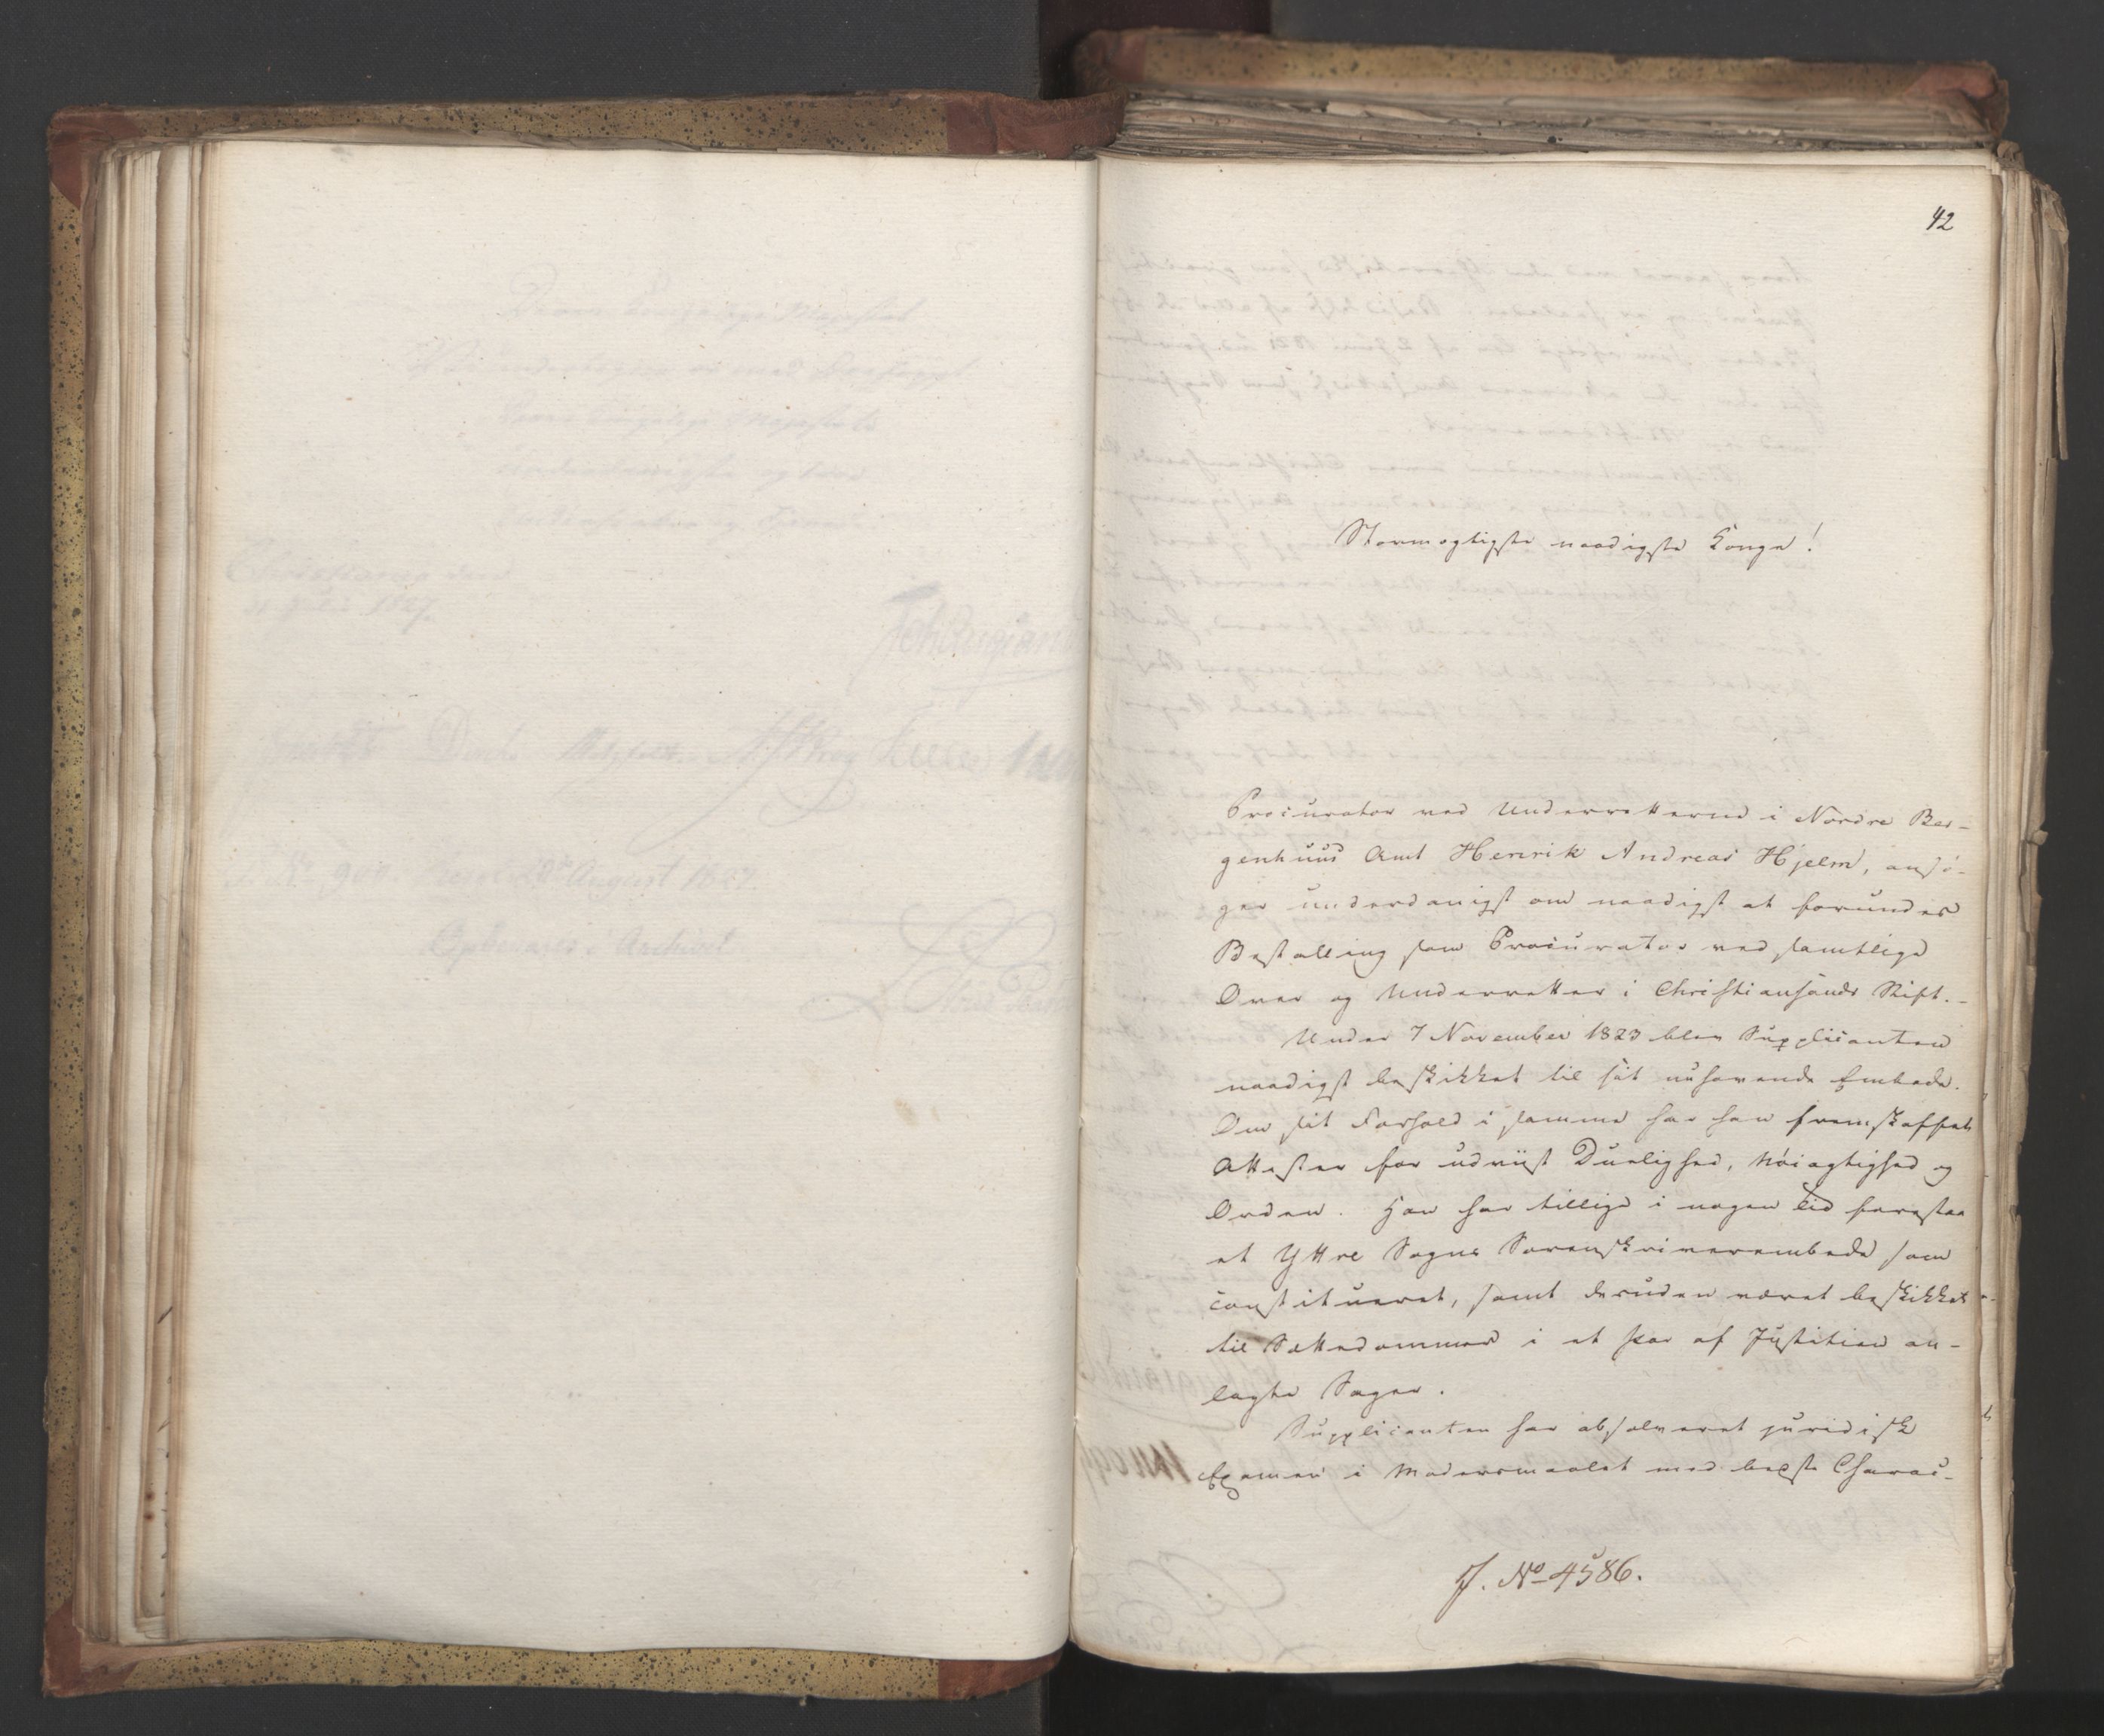 42
Stormægtigste naadigste Konge!
Procurator ved Underretterne i Nordre Ber-
genhuus Amt Henrik Andreas Hjelm, ansø-
ger underdanigst om naadigst at forundes
Bestalling som Procurator ved samtlige
Over og Underretter i Christiansands Stift.-
Under 7 November 1823 blev Supplicanten
naadigst beskikket til sit nuhavende Embede.
Om sit Forhold i samme har han fremskaffet
Attester for udviist Duelighed, Nøiagtighed og
Orden. Han har tillige i nogen Tid forestaa-
et Yttre Sogns Sorenskriverembede som
constitueret, samt desuden været beskikket
til Sættedommer i et Par af Justitien an-
lagte Sager.
Supplicanten har absolveret juridisk
Examen i Modersmaalet med bedste Charac-
J. No 4586.